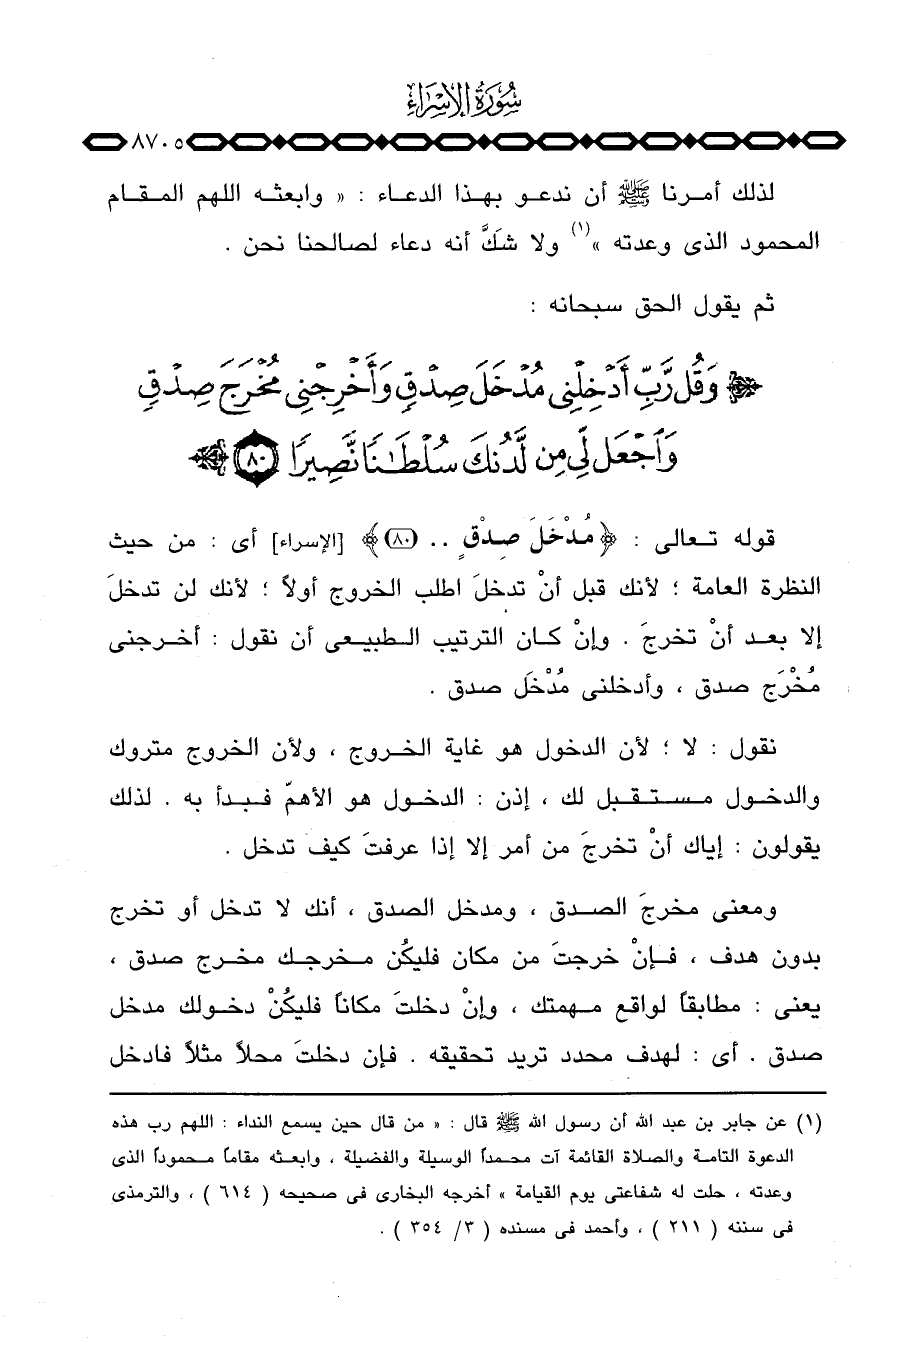 سُورَةُ الإِسْرَاءِ
٨٧٠٥
لذلك أمرنا ﷺ أن ندعو بهذا الدعاء : « وابعثه اللهم المقام
المحمود الذى وعدته »(١) ولا شكَّ أنه دعاء لصالحنا نحن .
ثم يقول الحق سبحانه :
وَقُل رَّبِّ أَدْخِلْنِى مُدْخَلَ صِدْقٍ وَأَخْرِجْنِى مُخْرَجَ صِدْقٍ
وَٱجْعَل لِّى مِن لَّدُنكَ سُلْطَٰنًا نَّصِيرًا ٨٠
قوله تعالى : ﴿ مُدْخَلَ صِدْقٍ .. (٨٠)﴾ [الإسراء] أى : من حيث
النظرة العامة ؛ لأنك قبل أنْ تدخلَ اطلب الخروج أولاً ؛ لأنك لن تدخلَ
إلا بعد أنْ تخرجَ . وإنْ كان الترتيب الطبيعى أن نقول : أخرجنى
مُخْرَج صدق ، وأدخلنى مُدْخَل صدق .
نقول : لا ؛ لأن الدخول هو غاية الخروج ، ولأن الخروج متروك
والدخول مستقبل لك ، إذن : الدخول هو الأهمّ فبدأ به . لذلك
يقولون : إياك أنْ تخرجَ من أمر إلا إذا عرفتَ كيف تدخل .
ومعنى مخرجَ الصدق ، ومدخل الصدق ، أنك لا تدخل أو تخرج
بدون هدف ، فإنْ خرجتَ من مكان فليكُن مخرجك مخرج صدق ،
يعنى : مطابقاً لواقع مهمتك ، وإنْ دخلتَ مكاناً فليكُنْ دخولك مدخل
صدق . أى : لهدف محدد تريد تحقيقه . فإن دخلتَ محلاً مثلاً فادخل
(١) عن جابر بن عبد الله أن رسول الله ﷺ قال : « من قال حين يسمع النداء : اللهم رب هذه
الدعوة التامة والصلاة القائمة آت محمداً الوسيلة والفضيلة ، وابعثه مقاماً محموداً الذى
وعدته ، حلت له شفاعتى يوم القيامة » أخرجه البخارى فى صحيحه ( ٦١٤ ) ، والترمذى
فى سننه ( ٢١١ ) ، وأحمد فى مسنده ( ٣/ ٣٥٤ ) .